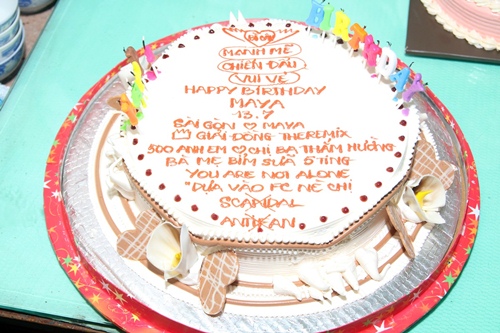 MẠNH MẼ
CHIẾN ĐẤU
VUI VẺ
HAPPY BIRTHDAY
MAYA
13.7
SÀI GÒN ♡ MAYA
GIẢI ĐỒNG THEREMIX
500 ANH EM ♡ CHỊ BẠ THẨM HƯỜNG
BÀ MẸ BỈM SỮA 5 TỈNG
YOU ARE NOT ALONE
"DỰA VÀO FC NÈ CHỊ
SCANDAL
ANTIFAN